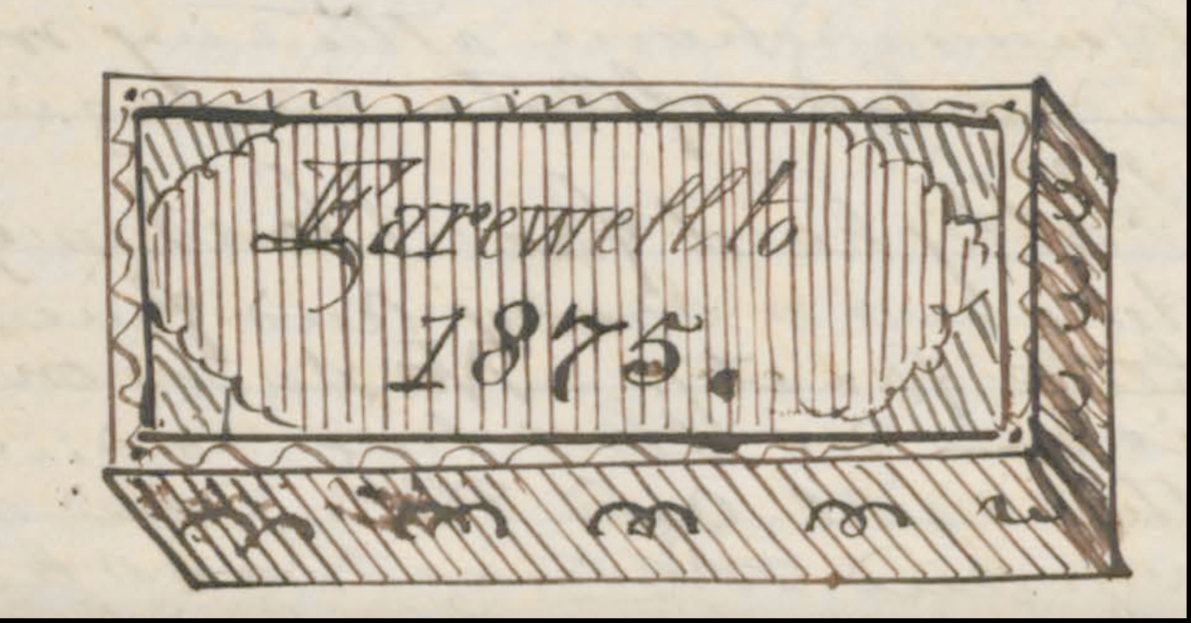 Farewell to
1875.